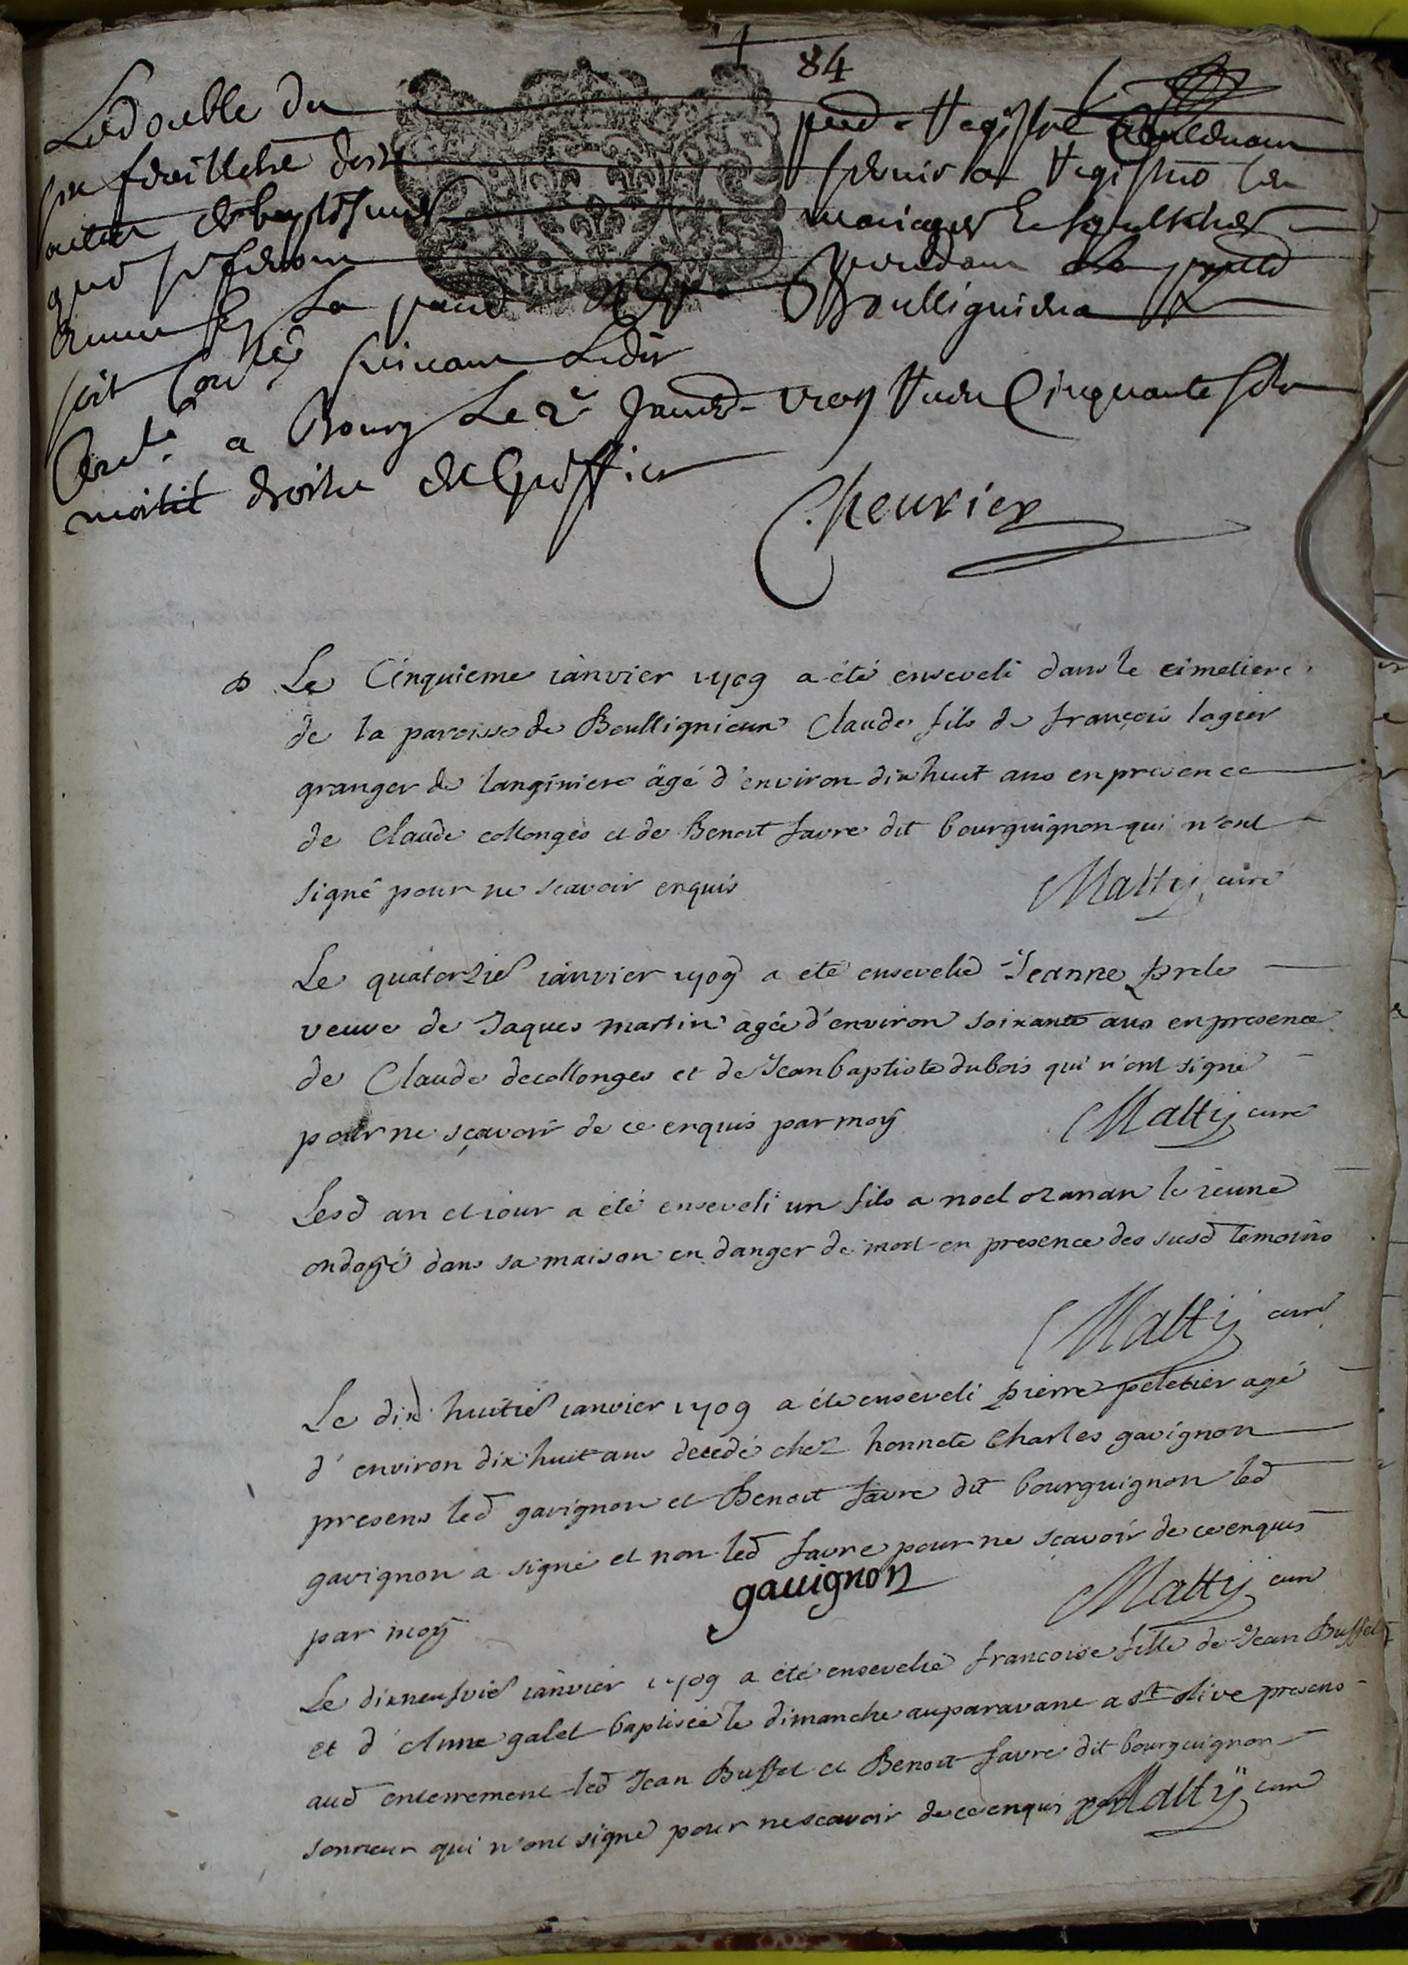 84
Le double du pnt Registre Contenant
six feuillets doit servir a Registrer les
actes de baptesmes mariages et sepultures
que se feront pendant la pnte
annee en la parr de Boullignieux
soit cotté suivant ledit
a Bourg le 2e Janvr 1709 Receu Cinquante sols
moitié droits de Greffier
Chevrier
Le Cinquieme ianvier 1709 a été enseveli dans le cimetiere
de la paroisse de Boullignieux Claude fils de françois lagier
granger de langiniere âgé d'environ dixhuit ans en presence
de Claude collonges et de Benoit favre dit bourguignon qui n'ont
signé pour ne scavoir enquis Maltij curé
Le quatorzie ianvier 1709 a eté ensevelie Jeanne
veuve de Jaques martin agée d'environ soixante ans en presence
de Claude decollonges et de Jean baptiste dubois qui n'ont signé
pour ne sçavoir de ce enquis par moÿ Maltij curé
Lesd an et iour a été enseveli un fils a noel ozanan le ieune
ondoÿé dans sa maison en danger de mort en presence des susd temoins
Maltij curé
Le dix huitie ianvier 1709 a été enseveli pierre peletier agé
d'environ dix huit ans decedé chez honnete Charles gavignon
presens led gavignon et Benoit favre dit bourguignon led
gavignon a signé et non led favre pour ne scavoir de ce enquis
par moÿ gauignon Maltij curé
Le dixneufvie ianvier 1709 a été ensevelie francoise fille de Jean Buffet
et d'Anne galet baptisée le dimanche auparavant a st olive presens
aud enterrement led Jean Buffet et Benoit favre dit bourguignon
sonneur qui n'ont signé pour ne scavoir de ce enqui par Maltÿ curé